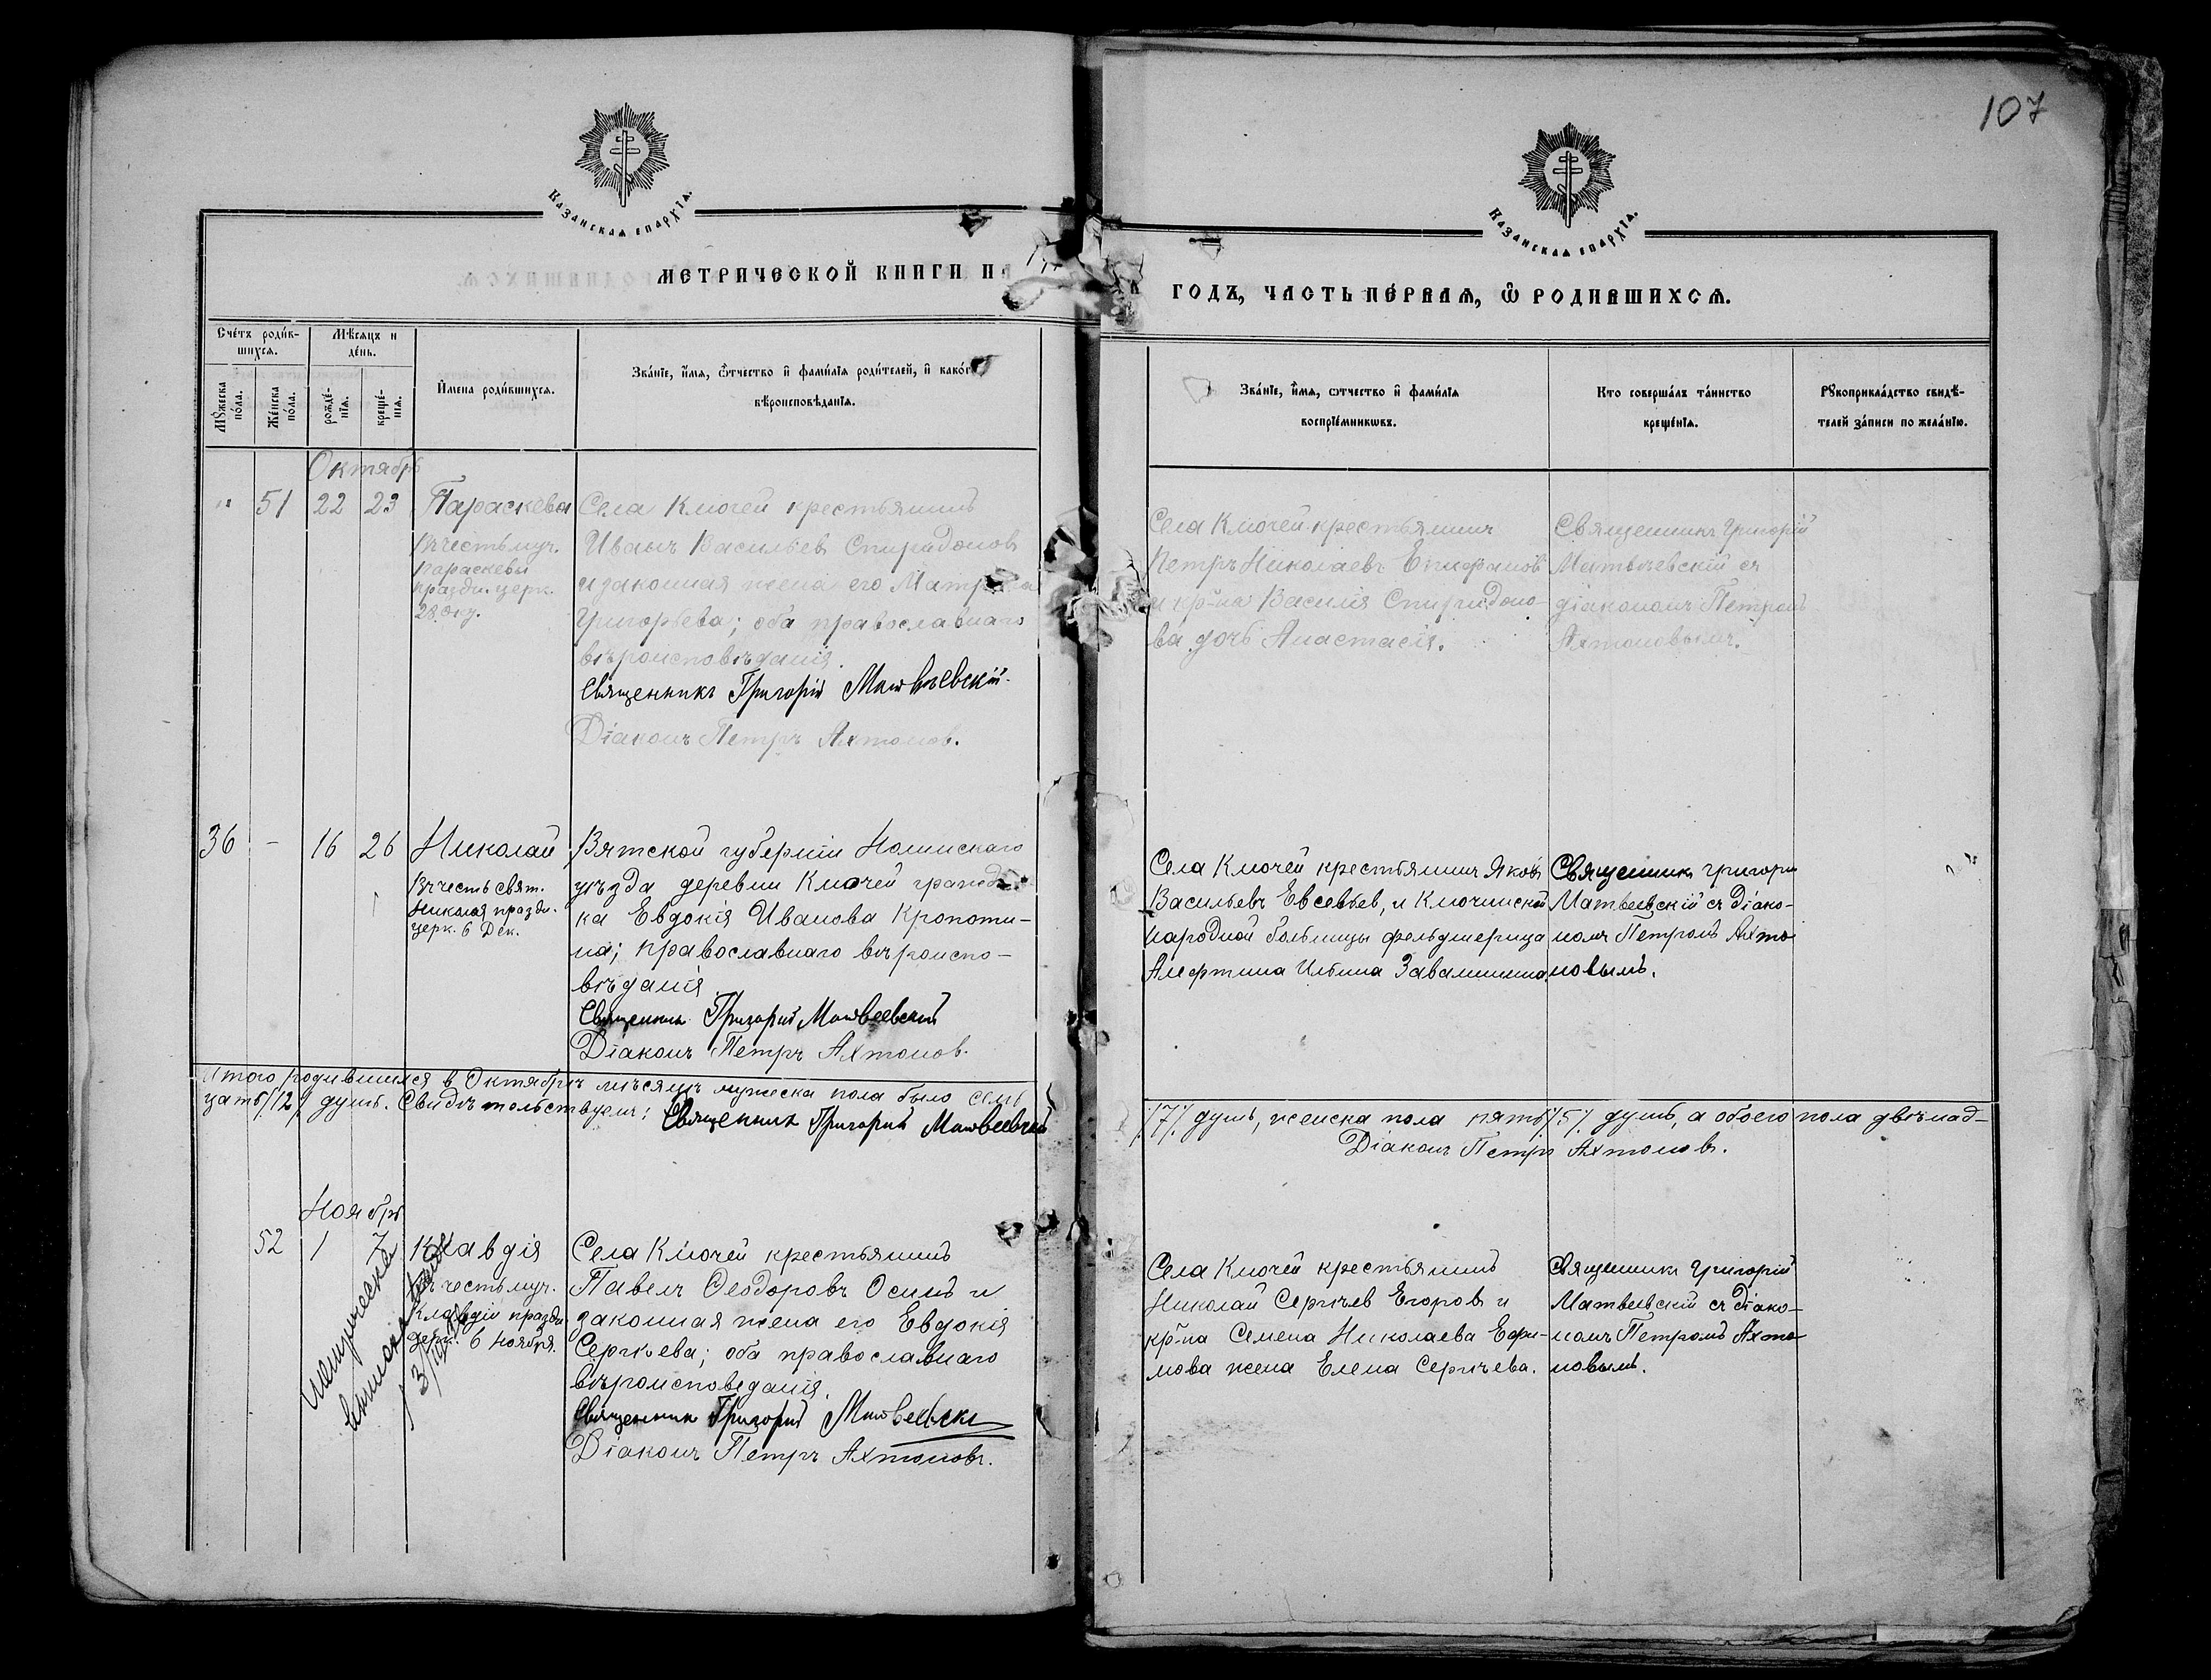 107
Казанская епархїа.
Казанская епархїа.
МЕТРИЧЕСКОЙ КНИГИ НА
ГОДЪ, ЧАСТЬ ПЕ́РВАЯ, Ѿ РОДИВШИХСѦ.
Сче́тъ роди́в-
шихсѧ.
Мѣ́сѧцъ и
де́нь.
Мꙋ́жеска
по́ла.
Же́нска
по́ла.
рожде́-
нїѧ.
креще́-
нїѧ.
И҆мена роди́вшихсѧ.
Зва́нїе, и҆́мѧ, ѻ҆́тчество и҆ фами́лїѧ роди́телей, и҆ како́гѡ
вѣроисповѣ́данїѧ.
Зва́нїе, и҆́мѧ, ѻ҆́тчество и҆ фами́лїѧ
воспрїе́мникѡвъ.
Кто соверша́лъ та́инство
креще́нїѧ.
Рꙋкоприкла́дство свидѣ́-
телей за́писи по жела́нїю.
Октябрь
" 51 22 23 Параскева
Въ честь муч.
Параскевы
праздн. церк.
28. Окт.
Села Ключей крестьянинъ
Иванъ Васильевъ Спиридоновъ
и законная жена его
Григорьева; оба православнаго
вѣроисповѣданія.
Священникъ Григорій Матвѣевскій.
Діаконъ Петръ Ахтоновъ.
Села Ключей крестьянинъ
Петръ Николаевъ Епифановъ
и кр-на Василія Спиридоно-
ва дочь Анастасія.
Священникъ Григорій
Матвѣевскій съ
діакономъ Петромъ
Ахтоновымъ.
36 - 16 26 Николай
Въ честь свят.
Николая праздн.
церк. 6 Дек.
Вятской губерніи Нолинскаго
уѣзда деревни Ключей гражд
ка Евдокія Иванова Кропоти-
на; православнаго вѣроиспо-
вѣданія.
Священникъ Григорій Матвеевскій
Діаконъ Петръ Ахтонов.
Села Ключей крестьянинъ Яковъ
Васильевъ Евсевьев, и Ключинской
народной больницы фельдшерица
Алефтина Ильина Завалишина.
Священникъ Григорій
Матвеевскій съ діако-
номъ Петромъ Ахто-
новымъ.
Итого родившихся в Октябрѣ мѣсяцѣ мужеска пола было семь
/7/ душъ, женска пола пять /5/ душъ, а обоего пола двѣнад-
цать /12/ душъ. Свидѣтельствуемъ: Священникъ Григорій Матвеевскій
Діаконъ Петръ Ахтоновъ.
Ноябрь
52 1 7 Клавдія
Въ честь муч.
Клавдіи праздн.
церк. 6 Ноября.
Села Ключей крестьянинъ
Павелъ Ѳеодоровъ Осинъ и
законная жена его Евдокія
Сергѣева; оба православнаго
вѣроисповеданія.
Священникъ Григорій Матвеевскі
Діаконъ Петръ Ахтоновъ.
Села Ключей крестьянинъ
Николай Сергѣев Егоровъ и
кр-на Семена Николаева Ефи-
мова жена Елена Сергѣева.
Священникъ Григорій
Матвеевскій съ діако-
номъ Петромъ Ахто-
новымъ.